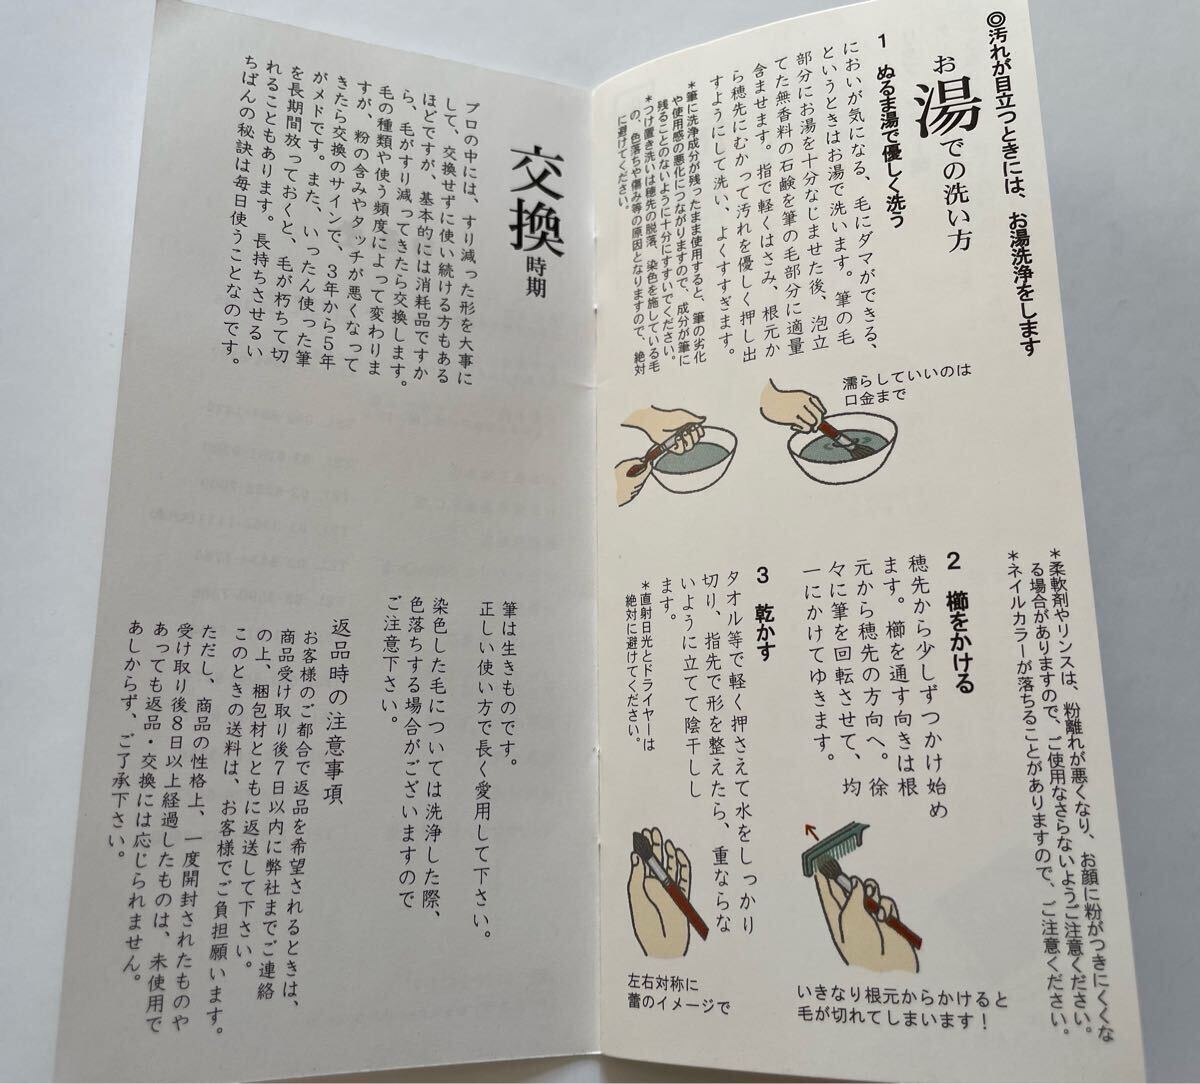 ◎汚れが目立つときには、お湯洗浄をします
お湯での洗い方
1 ぬるま湯で優しく洗う
においが気になる、毛にダマができる、
というときはお湯で洗います。筆の毛
部分にお湯を十分なじませた後、泡立
てた無香料の石鹸を筆の毛部分に適量
含ませます。指で軽くはさみ、根元か
ら穂先にむかって汚れを優しく押し出
すようにして洗い、よくすすぎます。
＊筆に洗浄成分が残ったまま使用すると、筆の劣化
や使用感の悪化につながりますので、成分が筆に
残ることのないように十分にすすいでください。
＊つけ置き洗いは穂先の脱落、染色を施している毛
の、色落ちや傷み等の原因となりますので、絶対
に避けてください。
濡らしていいのは
口金まで
＊柔軟剤やリンスは、粉離れが悪くなり、お顔に粉がつきにくくな
る場合がありますので、ご使用なさらないようご注意ください。
＊ネイルカラーが落ちることがありますので、ご注意ください。
2 櫛をかける
穂先から少しずつかけ始め
ます。櫛を通す向きは根
元から穂先の方向へ。徐
々に筆を回転させて、均
一にかけてゆきます。
いきなり根元からかけると
毛が切れてしまいます！
3 乾かす
タオル等で軽く押さえて水をしっかり
切り、指先で形を整えたら、重ならな
いように立てて陰干しし
ます。
＊直射日光とドライヤーは
絶対に避けてください。
左右対称に
蕾のイメージで
交換時期
プロの中には、すり減った形を大事に
して、交換せずに使い続ける方もある
ほどですが、基本的には消耗品ですか
ら、毛がすり減ってきたら交換します。
毛の種類や使う頻度によって変わりま
すが、粉の含みやタッチが悪くなって
きたら交換のサインで、3年から5年
がメドです。また、いったん使った筆
を長期間放っておくと、毛が朽ちて切
れることもあります。長持ちさせるい
ちばんの秘訣は毎日使うことなのです。
筆は生きものです。
正しい使い方で長く愛用して下さい。
染色した毛については洗浄した際、
色落ちする場合がございますので
ご注意下さい。
返品時の注意事項
お客様のご都合で返品を希望されるときは、
商品受け取り後7日以内に弊社までご連絡
の上、梱包材とともに返送して下さい。
このときの送料は、お客様でご負担願います。
ただし、商品の性格上、一度開封されたものや
受け取り後8日以上経過したものは、未使用で
あっても返品・交換には応じられません。
あしからず、ご了承下さい。